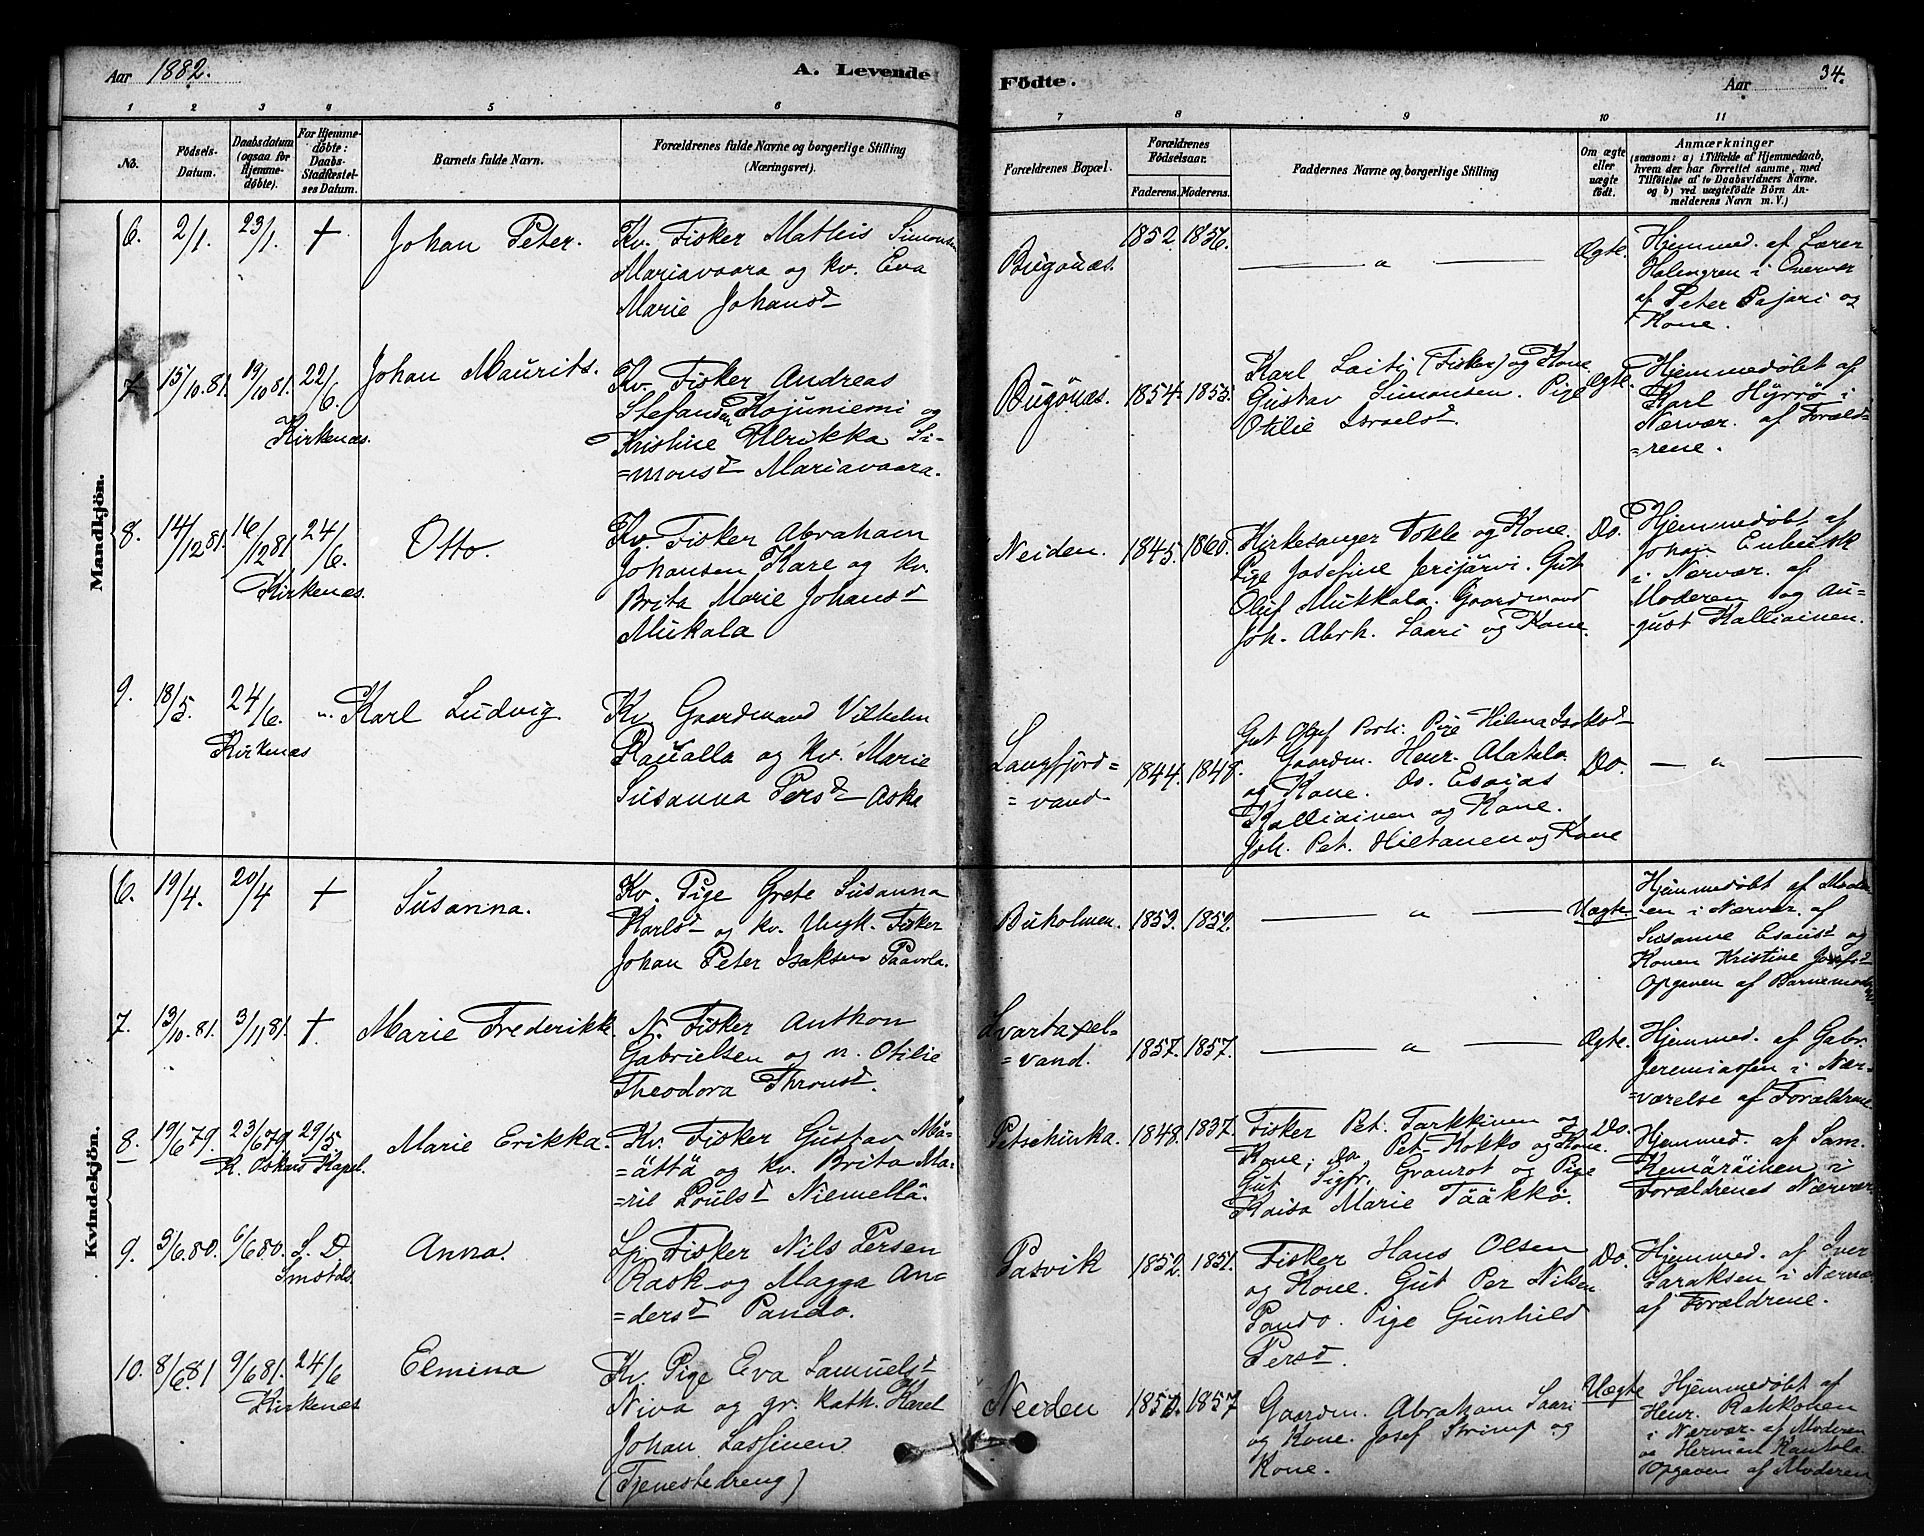 Aar 1882.
A. Levende
Födte.
Aar
34.
1 2 3 4 5 6 7 8 9 10 11
No.
Födsels-
Datum.
Daabsdatum
(ogsaa for
Hjemme-
döbte).
For Hjemme-
döbte:
Daabs-
Stadfæstel-
ses Datum.
Barnets fulde Navn.
Forældrenes fulde Navne og borgerlige Stilling
(Næringsvei).
Forældrenes Bopæl.
Forældrenes
Födselsaar.
Faderens. Moderens.
Faddernes Navne og borgerlige Stilling
Om ægte
eller
uægte
födt.
Anmærkninger
(saasom: a) i Tilfælde af Hjemmedaab,
hvem der har forrettet samme, med
Tilföielse af to Daabsvidners Navne,
og b) ved uægtefödte Börn An-
melderens Navn m. V.)
Mandkjön.
6. 2/1. 23/1. † Johan Peter.
Kv. Fisker Mathis Simonsen
Mariavaara og kv. Eva
Marie Johansd
Bugönæs. 1852. 1856.
— " —
Ægte.
Hjemmed. af Lærer
Holmgren i Overvær
af Peter Pajari og
Kone.
7. 15/10.81. 19/10 81. 22/6. Johan Maurits.
Kirkenæs.
Kv. Fisker Andreas
Stefansen Kojuniemi og
Kristine Ulrikka Si-
=monsd Mariavaara.
Bugönæs. 1854. 1855.
Karl Laiti (Fisker) og Kone
Gustav Simonsen. Pige
Otilie Israelsd
Ægte.
Hjemmedøbt af
Karl Hyrrö i
Nærvær. af Foræld-
=rene.
8. 14/12 81. 16/12 81. 24/6. Otto.
Kirkenæs.
Kv. Fisker Abraham
Johansen Kare og kv.
Brita Marie Johansd
Mukala
Neiden. 1845. 1860.
Kirkesanger Tokle og Kone.
Pige Josefine Jerijärvi. Gut
Oluf Mukkala. Gaardmand
Joh. Abrh. Saari og Kone.
Do.
Hjemmedøbt af
Johan
i Nærvær. af
Moderen og Au-
-gust Kalliainen.
9. 18/5. 24/6. " Karl Ludvig
Kirkenæs
Kv. Gaardmand Vilhelm
Raualla og kv. Marie
Susanna Persd Aska
Langfjord=
=vand. 1844. 1848.
Gut Olef Porti. Pige Helma Isaksd
Gaardm. Henr. Alatalo
og Kone. Do. Esaias
Kalliainen og Kone.
Joh. Pet. Hietanen og Kone
Do.
— " —
Kvindekjön.
6. 19/4. 20/4 † Susanna.
Kv. Pige Grete Susanna
Karlsd og kv. Ungk. Fisker
Johan Peter Isaksen Paavola.
Buholmen. 1853. 1852.
— " —
Uægte
Hjemmedøbt af Mode-
-en i Nærvær. af
Susanne Esaisd og
Konen Kristine
Opgaven af Barnemoder
7. 13/10.81. 3/11 81. †. Marie Frederikk
N. Fisker Anthon
Gabrielsen og n. Otilie
Theodora Thronsd.
Svartaxel-
=vand. 1857. 1857.
— " —
Ægte.
Hjemmed. af Gabr.
Jeremiassen i Nær-
=værelse af Forældrene
8. 19/6 79. 23/6 79. 29/5 Marie Erikka.
K. Oskars Kapel.
Kv. Fisker Gustav Mä-
=ättä og kv. Brita Ma-
=ril Poulsd Niemellä.
Petschinka. 1848. 1837.
Fisker Pet. Tarkkinen og
Kone, do Pet. Kokko og Kone.
Gut Sigfr. Granrot og Pige
Kaisa Marie Tääkkö.
Do.
Hjemmed. af Sam.
Kemäräinen i
Forældrenes Nærvær.
9. 3/6.80. 6/6 80. S. D. Anna.
Smstds.
Lp. Fisker Nils Persen
Rask og Magga An=
=dersd Pando.
Pasvik 1852. 1851.
Fisker Hans Olsen
og Kone. Gut Per Nilsen
Pando. Pige Gunhild
Persd.
Do.
Hjemmed. af Iver
Saraksen i Nærvær
af Forældrene.
10. 8/6.81 9/6 81. 24/6 Elmina
Kirkenæs
Kv. Pige Eva Samuelsd
Niva og gr. kath. Karel
Johan Lassinen
(Tjenestedreng)
Neiden 1857
Gaardm. Abraham Saari
og Kone. Josef Strimp og
Kone.
Uægte
Hjemmedøbt af
Henr. Rahkonen
i Nærvær. af Moderen
og Herman Kantola
Opgaven af Moderen